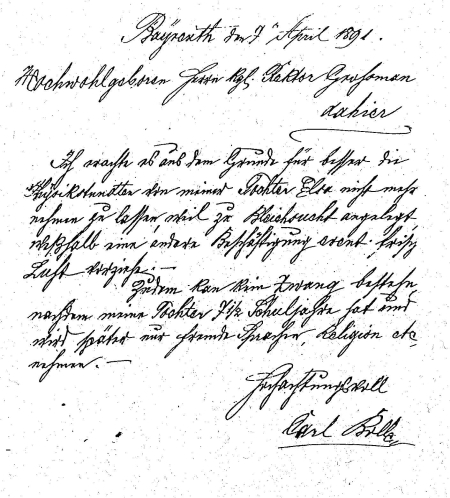 Bayreuth den 7ᵗ April 1891.
Hochwohlgeboren Herrn kgl. Rektor Grossman
dahier
Ich erachte es aus dem Grunde für besser die
Physikstunden von meiner Tochter Elsa nicht mehr
nehmen zu lassen, weil zu Bleichsucht angelegt
weßhalb eine andere Beschäftigung event. frische
Luft vorziehe. —
Zudem kan kein Zwang bestehn
nachdem meine Tochter 7½ Schuljahre hat und
wird später nur fremde Sprachen, Religion etc
nehmen. —
Hochachtungsvoll
Carl